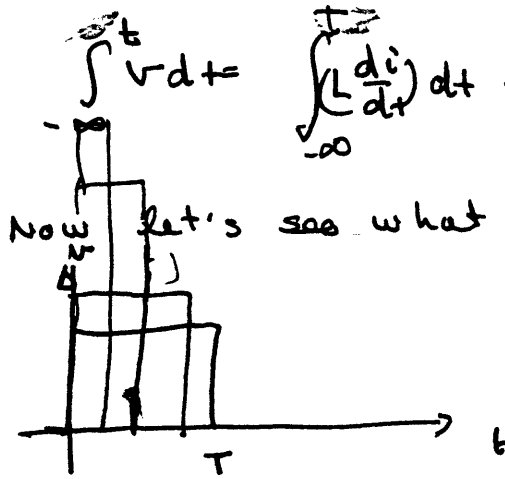 ∫_{-∞}^{t} v dt = ∫_{-∞}^{T} (L di/dt) dt
Now let's see what
v
T
t